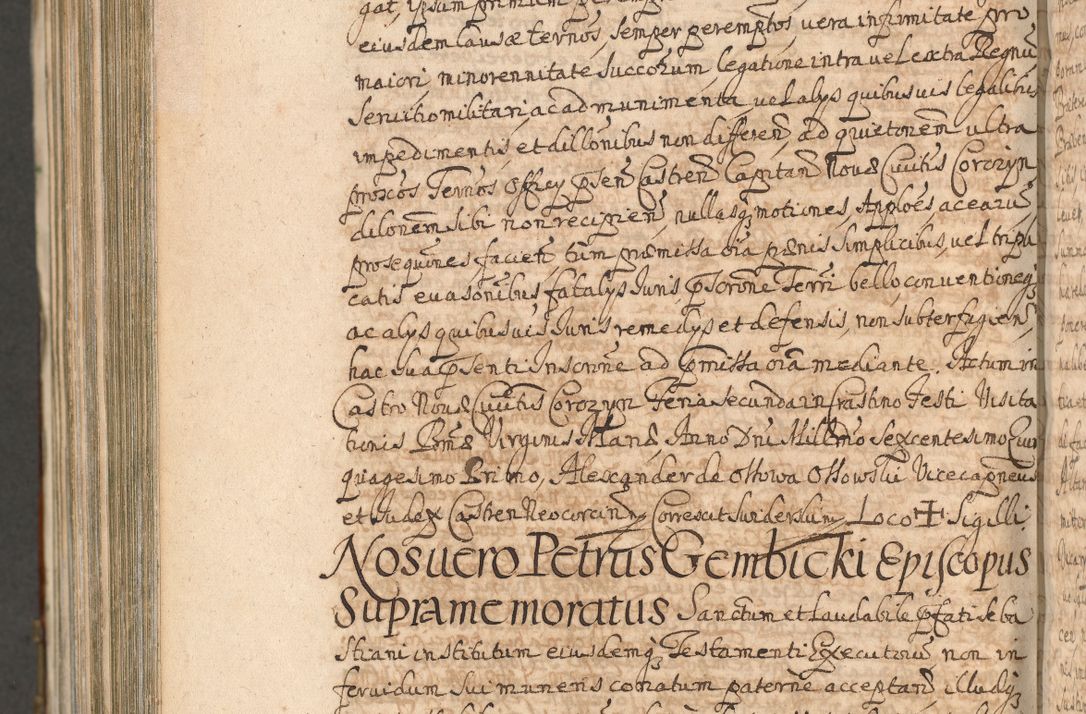 gat, ipsum primum peremp
eiusdem causæ ternos, semper peremptos, vera infirmitate pro
maiori, minorennitate succorum legatione intra vel extra Regnũ
servitio militari, ac ad munimenta vel alys quibusvis legalibus
impedimentis, et dillonibus non differen̄, ad quietonem ultra
proscos Ternos Offrey pn̄sen̄ Castren̄ Capitan̄ Novæ Civitis Corozyn
dilonem sibi non recipien̄, nullasq; motiones, Apploēs, ac earũ
prosequūnes facien̄, tum præmissa oīa pænis simplicibus, vel tripli
catis evasonibus fatalys Iuris, pscrōne Terrī bello, conventioneq;
ac alys quibusvis Iuris remedys et defensis, non subterfugien̄
hac sua psenti Inscrōne ad pmissa oīa mediante. Actum in
Castro Novæ Civitis Corozyn Feria secunda in Crastino Festi Visita
tionis Bmæ Virginis Mariæ Anno Dni Millmo Sexcentesimo Quin
quagesimo Primo, Alexander de Ottowa Ottowski Vicecapneus
et Iudex Castren Neocorcinen̄ Correxit Suiderskim Loco ✝ Sigilli
Nos vero Petrus Gembicki Episcopus
Supramemoratus Sanctum et laudabile pfati Seba
stiani institutum eiusdemq; Testamenti Executorũ, non in
fervidum sui muneris conatum paterne acceptan̄ illudq;